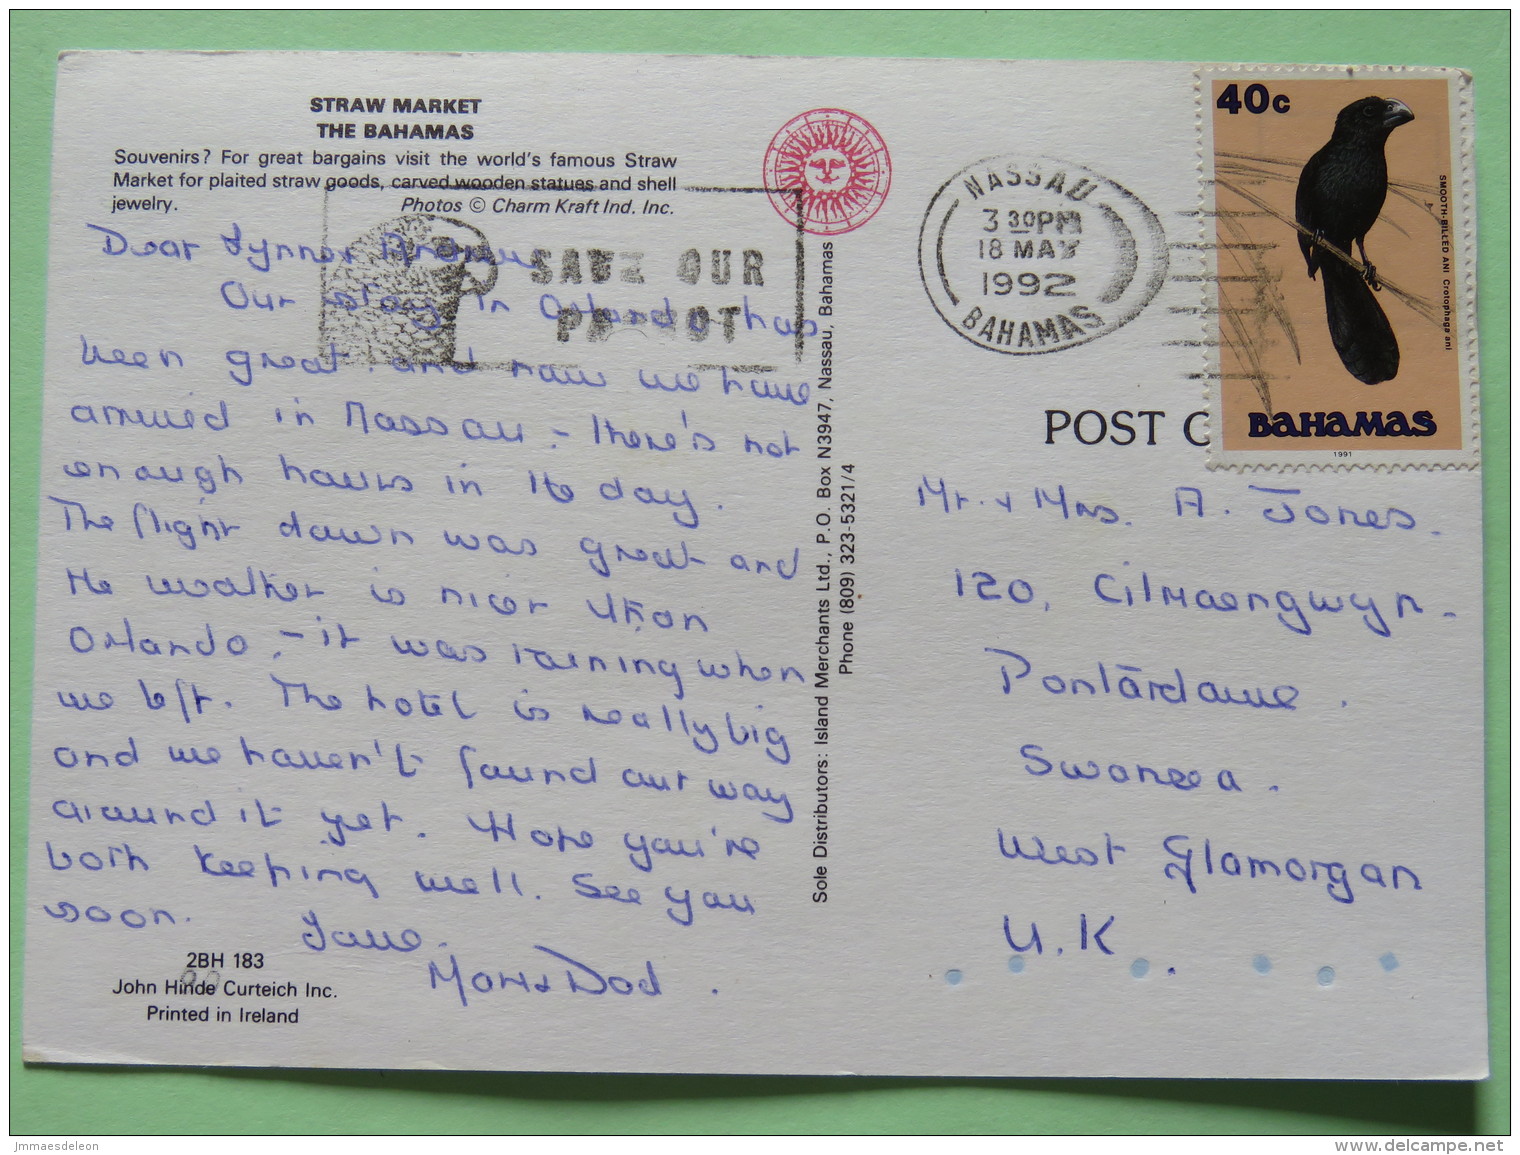 STRAW MARKET
THE BAHAMAS
Souvenirs? For great bargains visit the world's famous Straw
Market for plaited straw goods, carved wooden statues and shell
jewelry.
Photos © Charm Kraft Ind. Inc.
SAVE OUR
PARROT
Dear Lynne & Andrew
Our stay in Orlando has
been great. and now we have
arrived in Nassau - there's not
enough hours in the day.
The flight down was great and
the weather is nicer than
Orlando. - it was raining when
we left. The hotel is really big
and we haven't found our way
around it yet. Hope you're
both keeping well. See you
soon. Love.
Mom & Dad.
2BH 183
John Hinde Curteich Inc.
Printed in Ireland
Sole Distributors: Island Merchants Ltd., P.O. Box N3947, Nassau, Bahamas
Phone (809) 323-5321/4
NASSAU
3 30PM
18 MAY
1992
BAHAMAS
40c
SMOOTH-BILLED ANI Crotophaga ani
BAHAMAS
1991
POST C
Mr. & Mrs. A. Jones.
120, Cilmaengwyn.
Pontardawe.
Swansea.
West Glamorgan
U.K.
jmmaesdeleon
delcampe.net